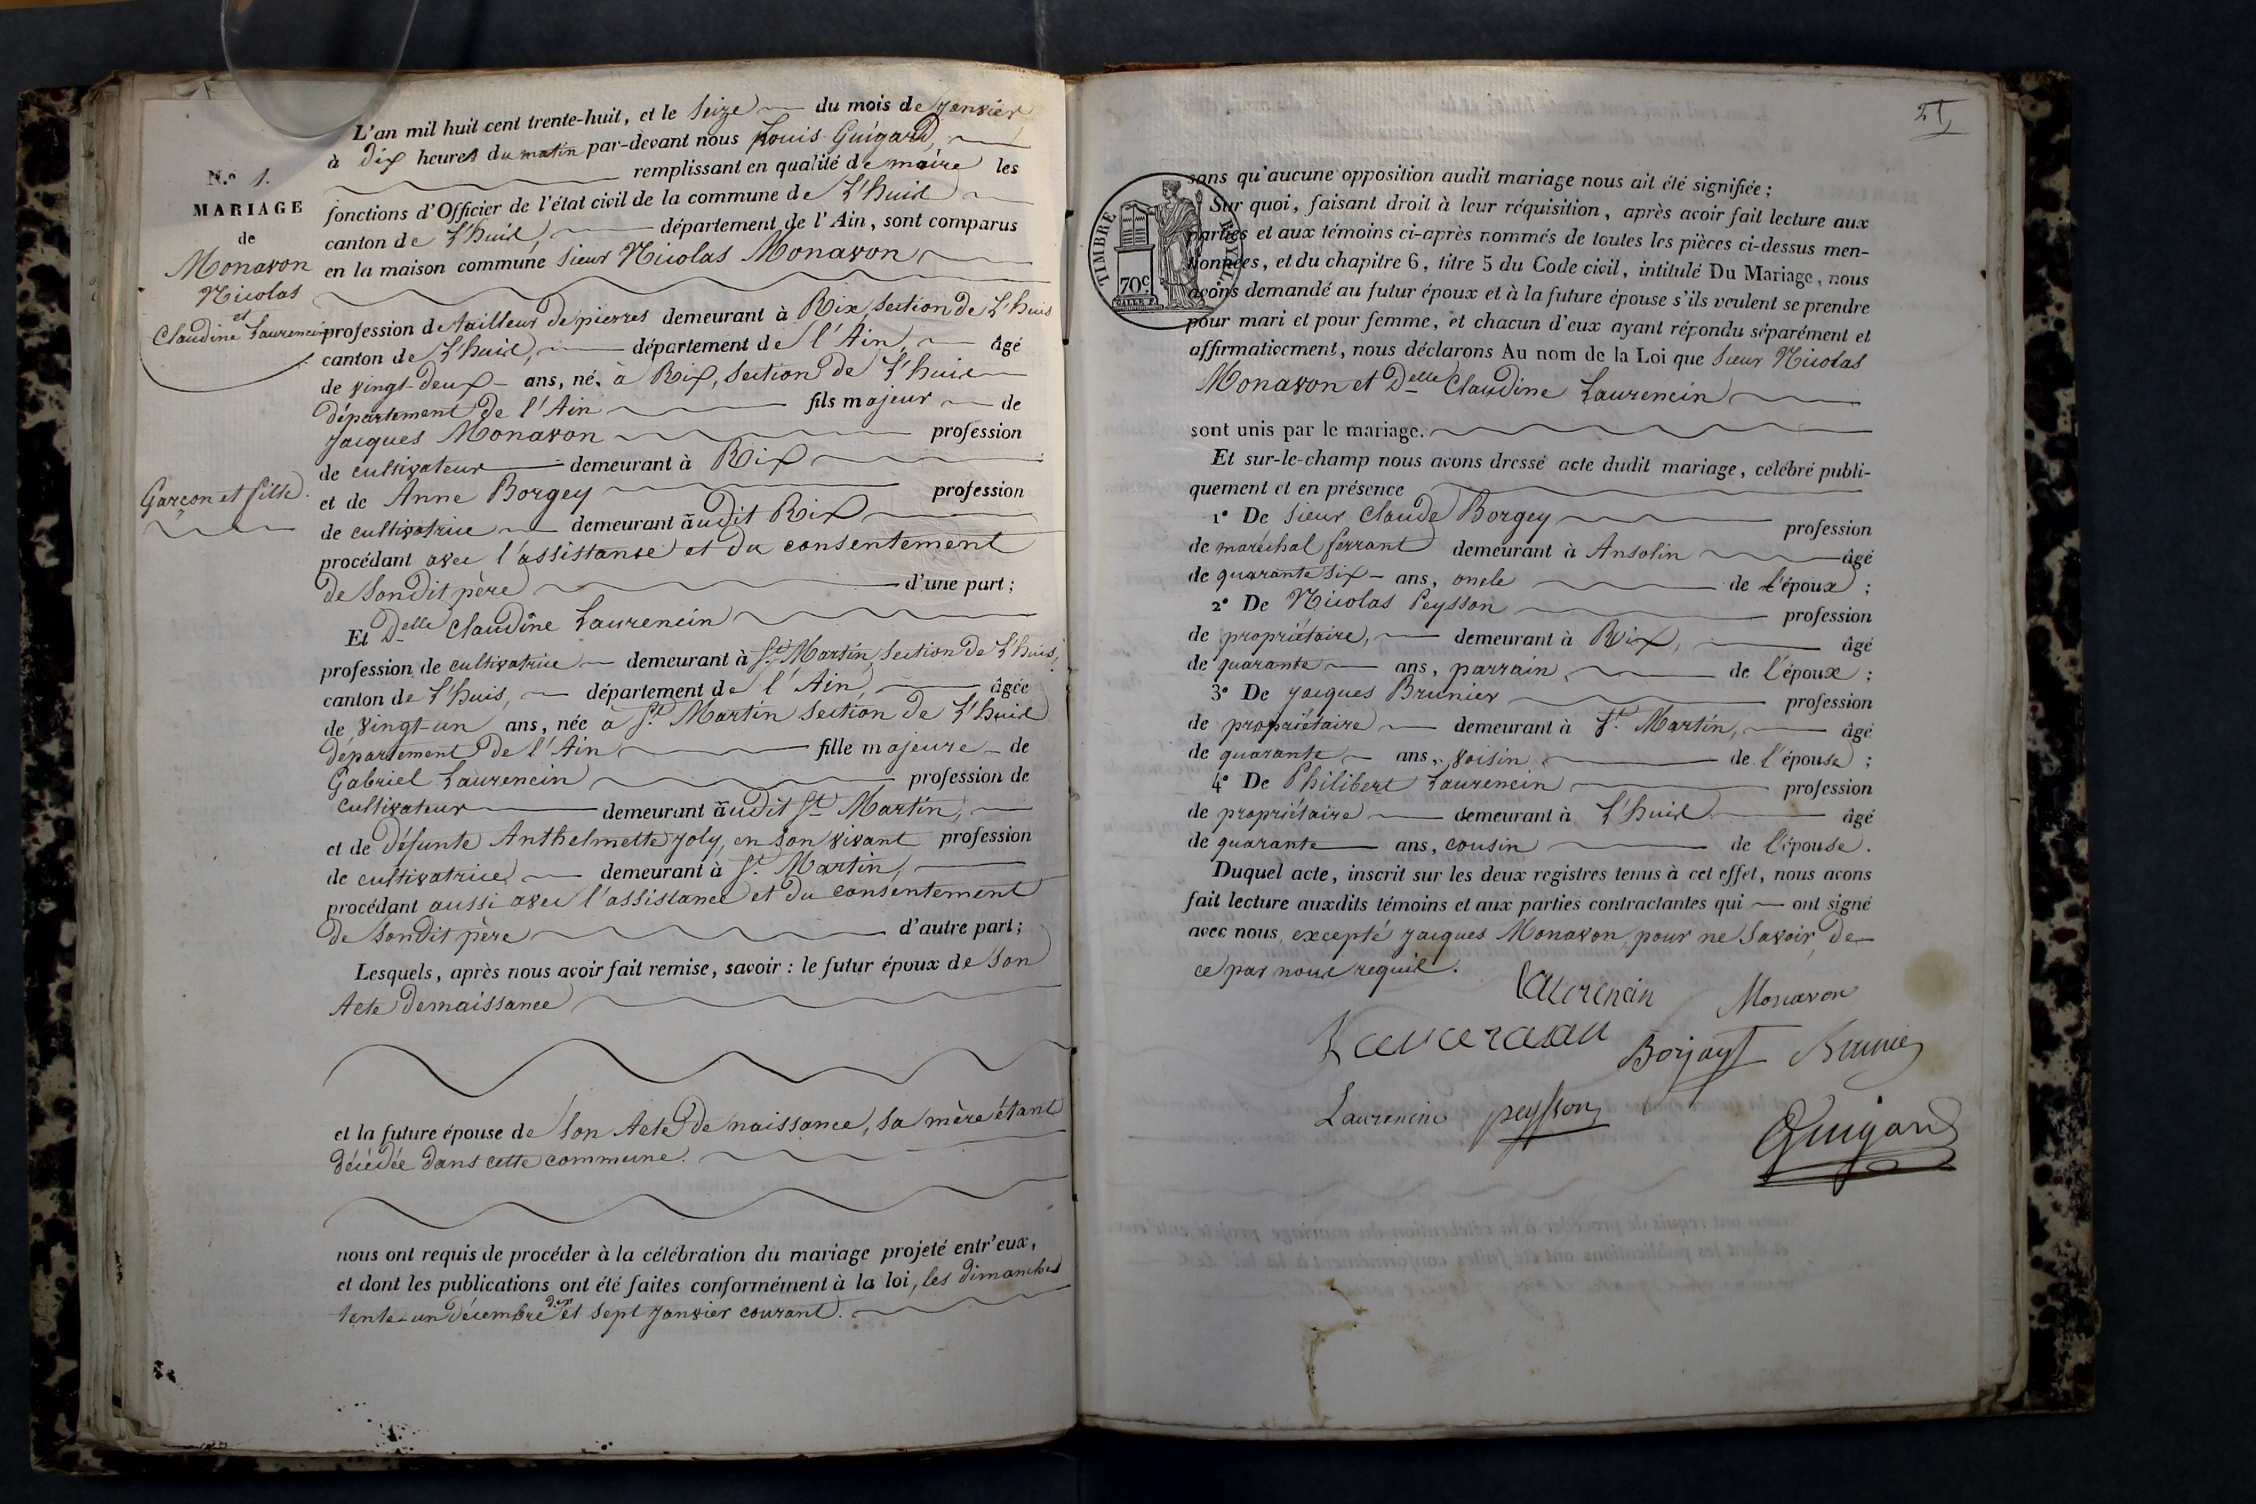 N.º 1.
MARIAGE
de
Monavon
Nicolas
et
Claudine Laurencin
Garçon et fille.
L'an mil huit cent trente-huit, et le seize du mois de janvier
à dix heures du matin par-devant nous Louis Guigard,
remplissant en qualité de maire les
fonctions d'Officier de l'état civil de la commune de L'huis
canton de L'huis, département de l'Ain, sont comparus
en la maison commune sieur Nicolas Monavon
profession de tailleur de pierres demeurant à Rix, section de L'huis
canton de L'huis, département de l'Ain, âgé
de vingt-deux ans, né à Rix, section de L'huis
département de l'Ain fils majeur de
Jacques Monavon profession
de cultivateur demeurant à Rix
et de Anne Borgey profession
de cultivatrice demeurant audit Rix
procédant avec l'assistance et du consentement
de son dit père d'une part;
Et Delle Claudine Laurencin
profession de cultivatrice demeurant à St. Martin, section de L'huis,
canton de L'huis, département de l'Ain, âgée
de vingt-un ans, née à St. Martin section de L'huis
département de l'Ain fille majeure de
Gabriel Laurencin profession de
cultivateur demeurant audit St. Martin,
et de défunte Anthelmette Joly, en son vivant profession
de cultivatrice demeurant à St. Martin,
procédant aussi avec l'assistance et du consentement
de son dit père d'autre part;
Lesquels, après nous avoir fait remise, savoir : le futur époux de son
Acte de naissance
et la future épouse de son Acte de naissance, sa mère étant
décédée dans cette commune.
nous ont requis de procéder à la célébration du mariage projeté entr'eux,
et dont les publications ont été faites conformément à la loi, les dimanches
tente-un décembre d.er et sept janvier courant.
TIMBRE ROYAL
70c.
sans qu'aucune opposition audit mariage nous ait été signifiée;
Sur quoi, faisant droit à leur réquisition, après avoir fait lecture aux
parties et aux témoins ci-après nommés de toutes les pièces ci-dessus men-
tionnées, et du chapitre 6, titre 5 du Code civil, intitulé Du Mariage, nous
avons demandé au futur époux et à la future épouse s'ils veulent se prendre
pour mari et pour femme, et chacun d'eux ayant répondu séparément et
affirmativement, nous déclarons Au nom de la Loi que sieur Nicolas
Monavon et Delle Claudine Laurencin
sont unis par le mariage.
Et sur-le-champ nous avons dressé acte dudit mariage, célébré publi-
quement et en présence
1º De sieur Claude Borgey profession
de maréchal ferrant demeurant à Ansolin âgé
de quarante six ans, oncle de l'époux;
2º De Nicolas Peysson profession
de propriétaire, demeurant à Rix, âgé
de quarante ans, parrain de l'époux;
3º De Jacques Brunier profession
de propriétaire demeurant à St. Martin, âgé
de quarante ans, voisin de l'épouse;
4º De Philibert Laurencin profession
de propriétaire demeurant à L'huis âgé
de quarante ans, cousin de l'épouse.
Duquel acte, inscrit sur les deux registres tenus à cet effet, nous avons
fait lecture auxdits témoins et aux parties contractantes qui ont signé
avec nous, excepté Jacques Monavon, pour ne savoir, de
ce par nous requis.
Laurencin Monavon
Borjayt Brunier
Laurencin peysson
Guigard